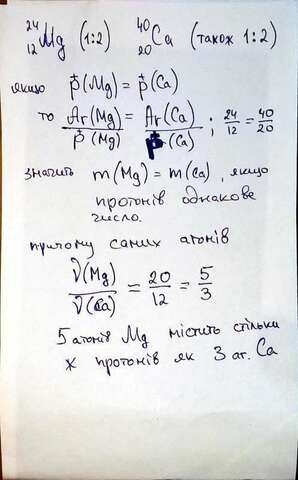 ²⁴₁₂Mg (1:2) ⁴⁰₂₀Ca (також 1:2)
якщо p⁺(Mg) = p⁺(Ca)
то Ar(Mg)/p⁺(Mg) = Ar(Ca)/p⁺(Ca) ; 24/12 = 40/20
значить m(Mg) = m(Ca), якщо
протонів однакове
число.
причому самих атомів
ν(Mg)/ν(Ca) = 20/12 = 5/3
5 атомів Mg містить стільки
ж протонів як 3 ат. Ca